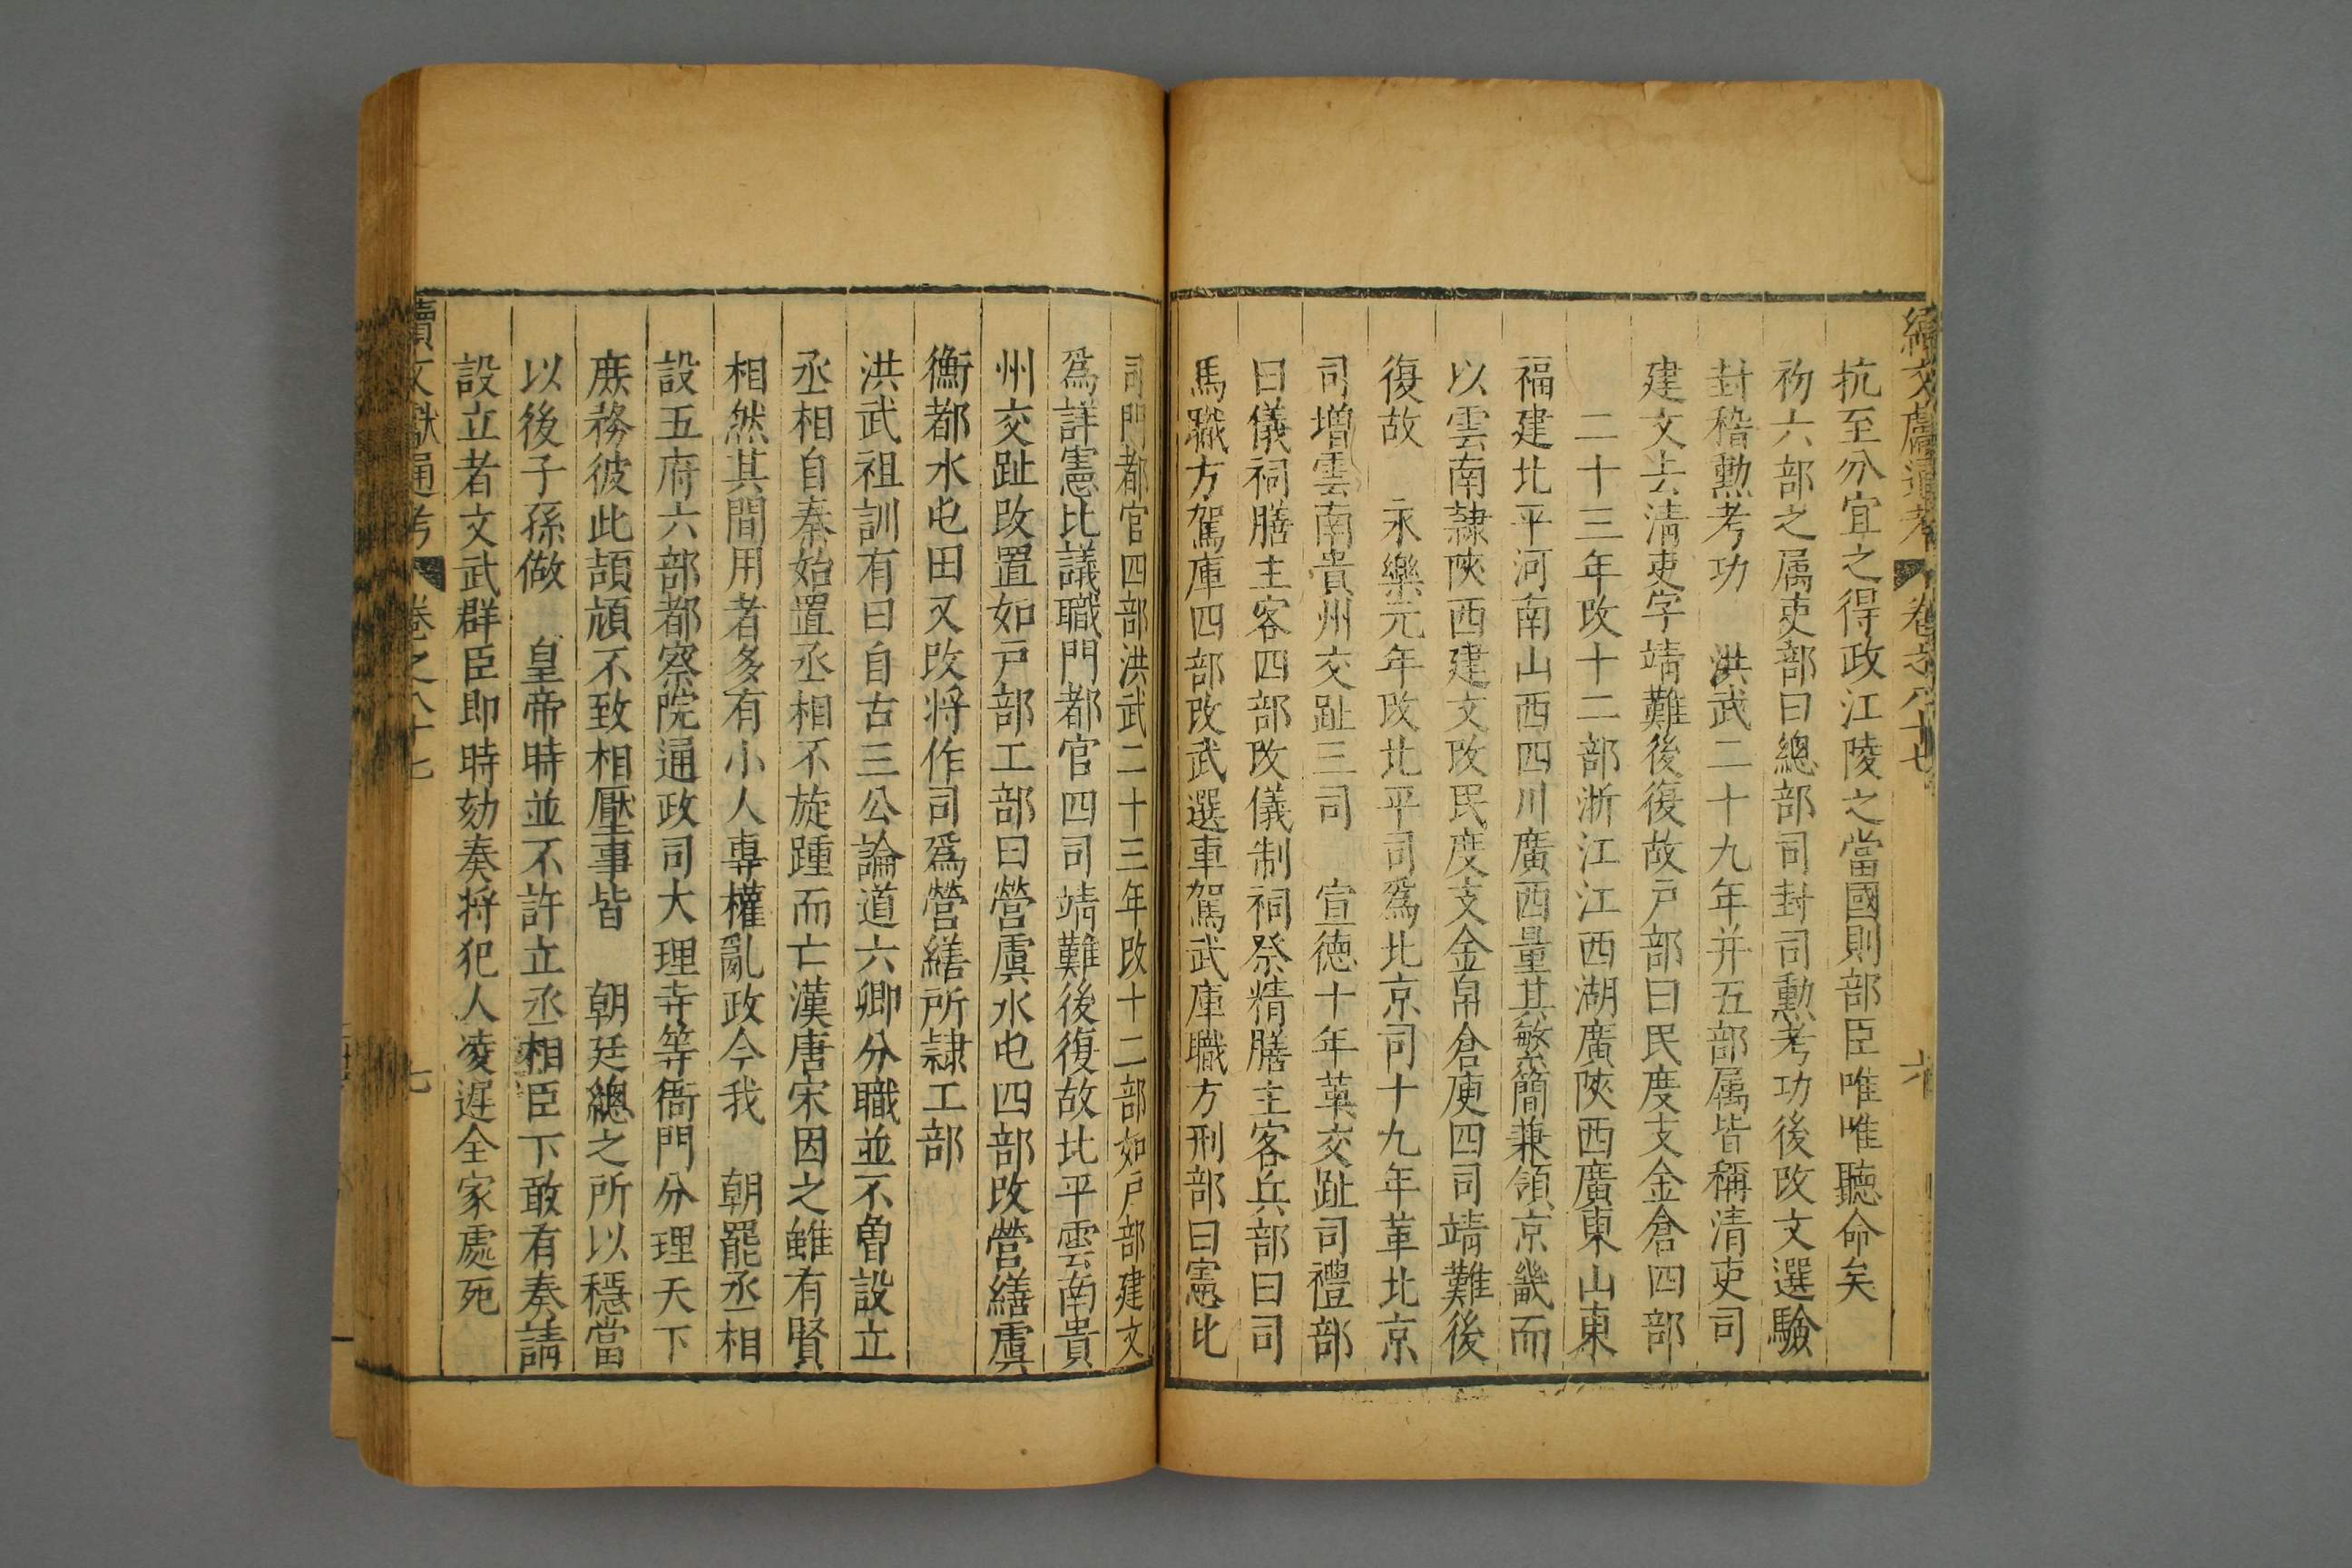 續文獻通考 卷之八十七 六
抗至分宜之得政江陵之當國則部臣唯唯聽命矣
初六部之属吏部曰總部司封司勲考功後改文選驗
封稽勲考功 洪武二十九年并五部属皆稱清吏司
建文去清吏字靖難後復故戸部曰民度支金倉四部
二十三年改十二部浙江江西湖廣陜西廣東山東
福建北平河南山西四川廣西量其繁簡兼領京畿而
以雲南隸陜西建文改民度支金帛倉庾四司靖難後
復故 永樂元年改北平司爲北京司十九年革北京
司增雲南貴州交趾三司 宣德十年革交趾司禮部
曰儀祠膳主客四部改儀制祠祭精膳主客兵部曰司
馬職方駕庫四部改武選車駕武庫職方刑部曰憲比
司門都官四部洪武二十三年改十二部如戸部建文
爲詳憲比議職門都官四司靖難後復故比平雲南貴
州交趾改置如戸部工部曰營虞水屯四部改營繕虞
衡都水屯田又改將作司爲營繕所隸工部
洪武祖訓有曰自古三公論道六卿分職並不曽設立
丞相自秦始置丞相不旋踵而亡漢唐宋因之雖有賢
相然其間用者多有小人專權亂政今我 朝罷丞相
設五府六部都察院通政司大理寺等衙門分理天下
庶務彼此頡頏不致相壓事皆 朝廷總之所以穩當
以後子孫做 皇帝時並不許立丞相臣下敢有奏請
設立者文武群臣即時劾奏將犯人凌遲全家處死
續文獻通考 卷之八十七 七